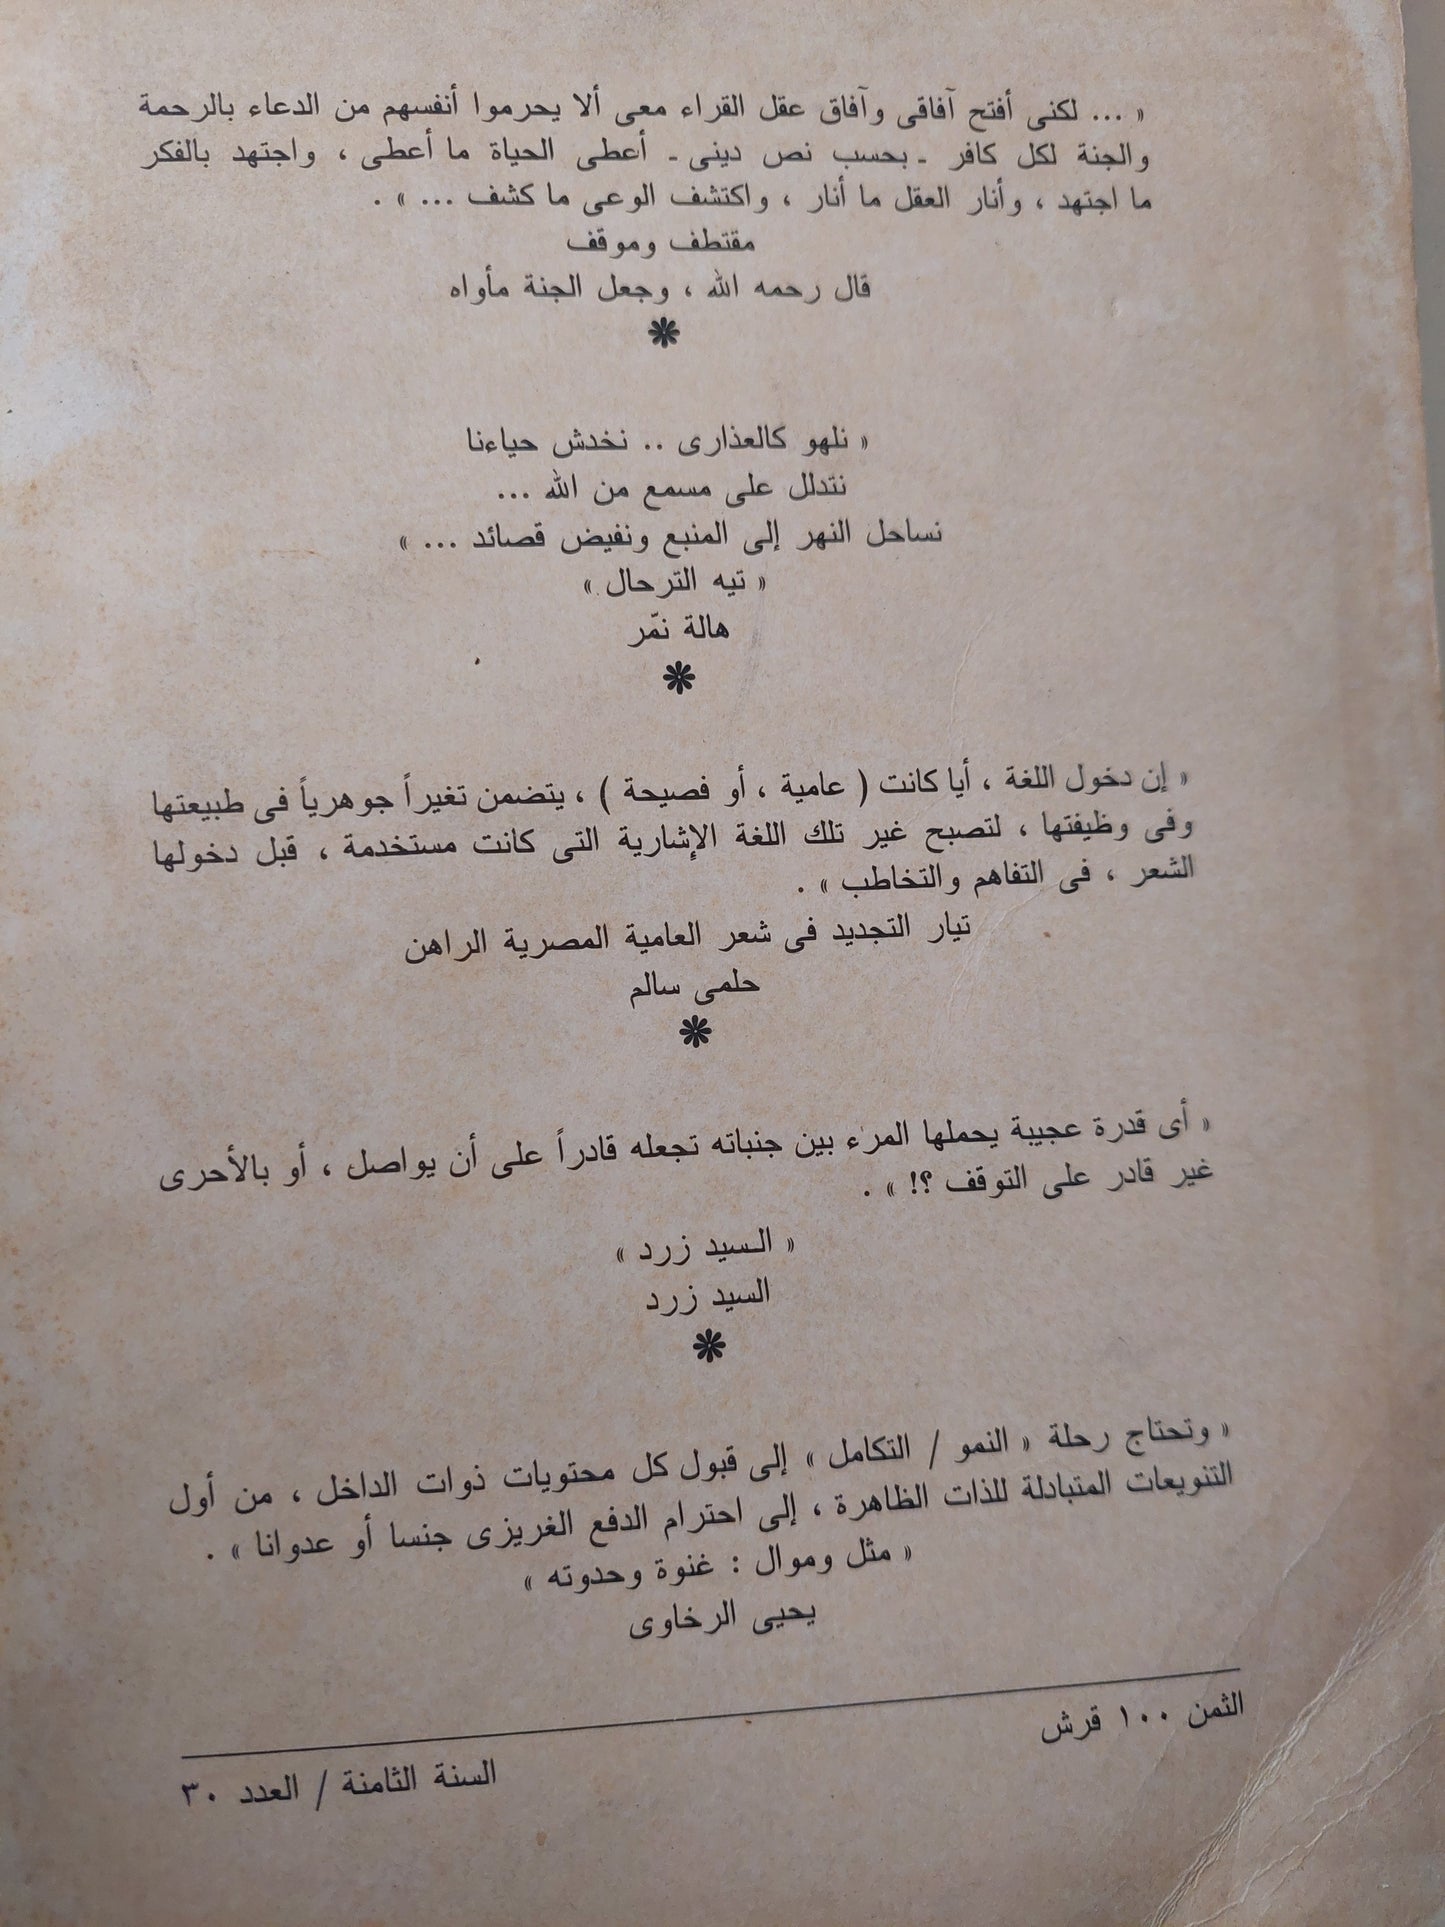 « ... لكنى أفتح آفاقى وآفاق عقل القراء معى ألا يحرموا أنفسهم من الدعاء بالرحمة
والجنة لكل كافر ـ بحسب نص دينى ـ أعطى الحياة ما أعطى ، واجتهد بالفكر
ما اجتهد ، وأنار العقل ما أنار ، واكتشف الوعى ما كشف ... » .
مقتطف وموقف
قال رحمه الله ، وجعل الجنة مأواه
« نلهو كالعذارى .. نخدش حياءنا
نتدلل على مسمع من الله ...
نساحل النهر إلى المنبع ونفيض قصائد ... »
« تيه الترحال »
هالة نمّر
« إن دخول اللغة ، أيا كانت ( عامية ، أو فصيحة ) ، يتضمن تغيراً جوهرياً فى طبيعتها
وفى وظيفتها ، لتصبح غير تلك اللغة الإشارية التى كانت مستخدمة ، قبل دخولها
الشعر ، فى التفاهم والتخاطب » .
تيار التجديد فى شعر العامية المصرية الراهن
حلمى سالم
« أى قدرة عجيبة يحملها المرء بين جنباته تجعله قادراً على أن يواصل ، أو بالأحرى
غير قادر على التوقف ؟! » .
« السيد زرد »
السيد زرد
« وتحتاج رحلة « النمو / التكامل » إلى قبول كل محتويات ذوات الداخل ، من أول
التنويعات المتبادلة للذات الظاهرة ، إلى احترام الدفع الغريزى جنسا أو عدوانا » .
« مثل وموال : غنوة وحدوته »
يحيى الرخاوى
الثمن ١٠٠ قرش
السنة الثامنة / العدد ٣٠